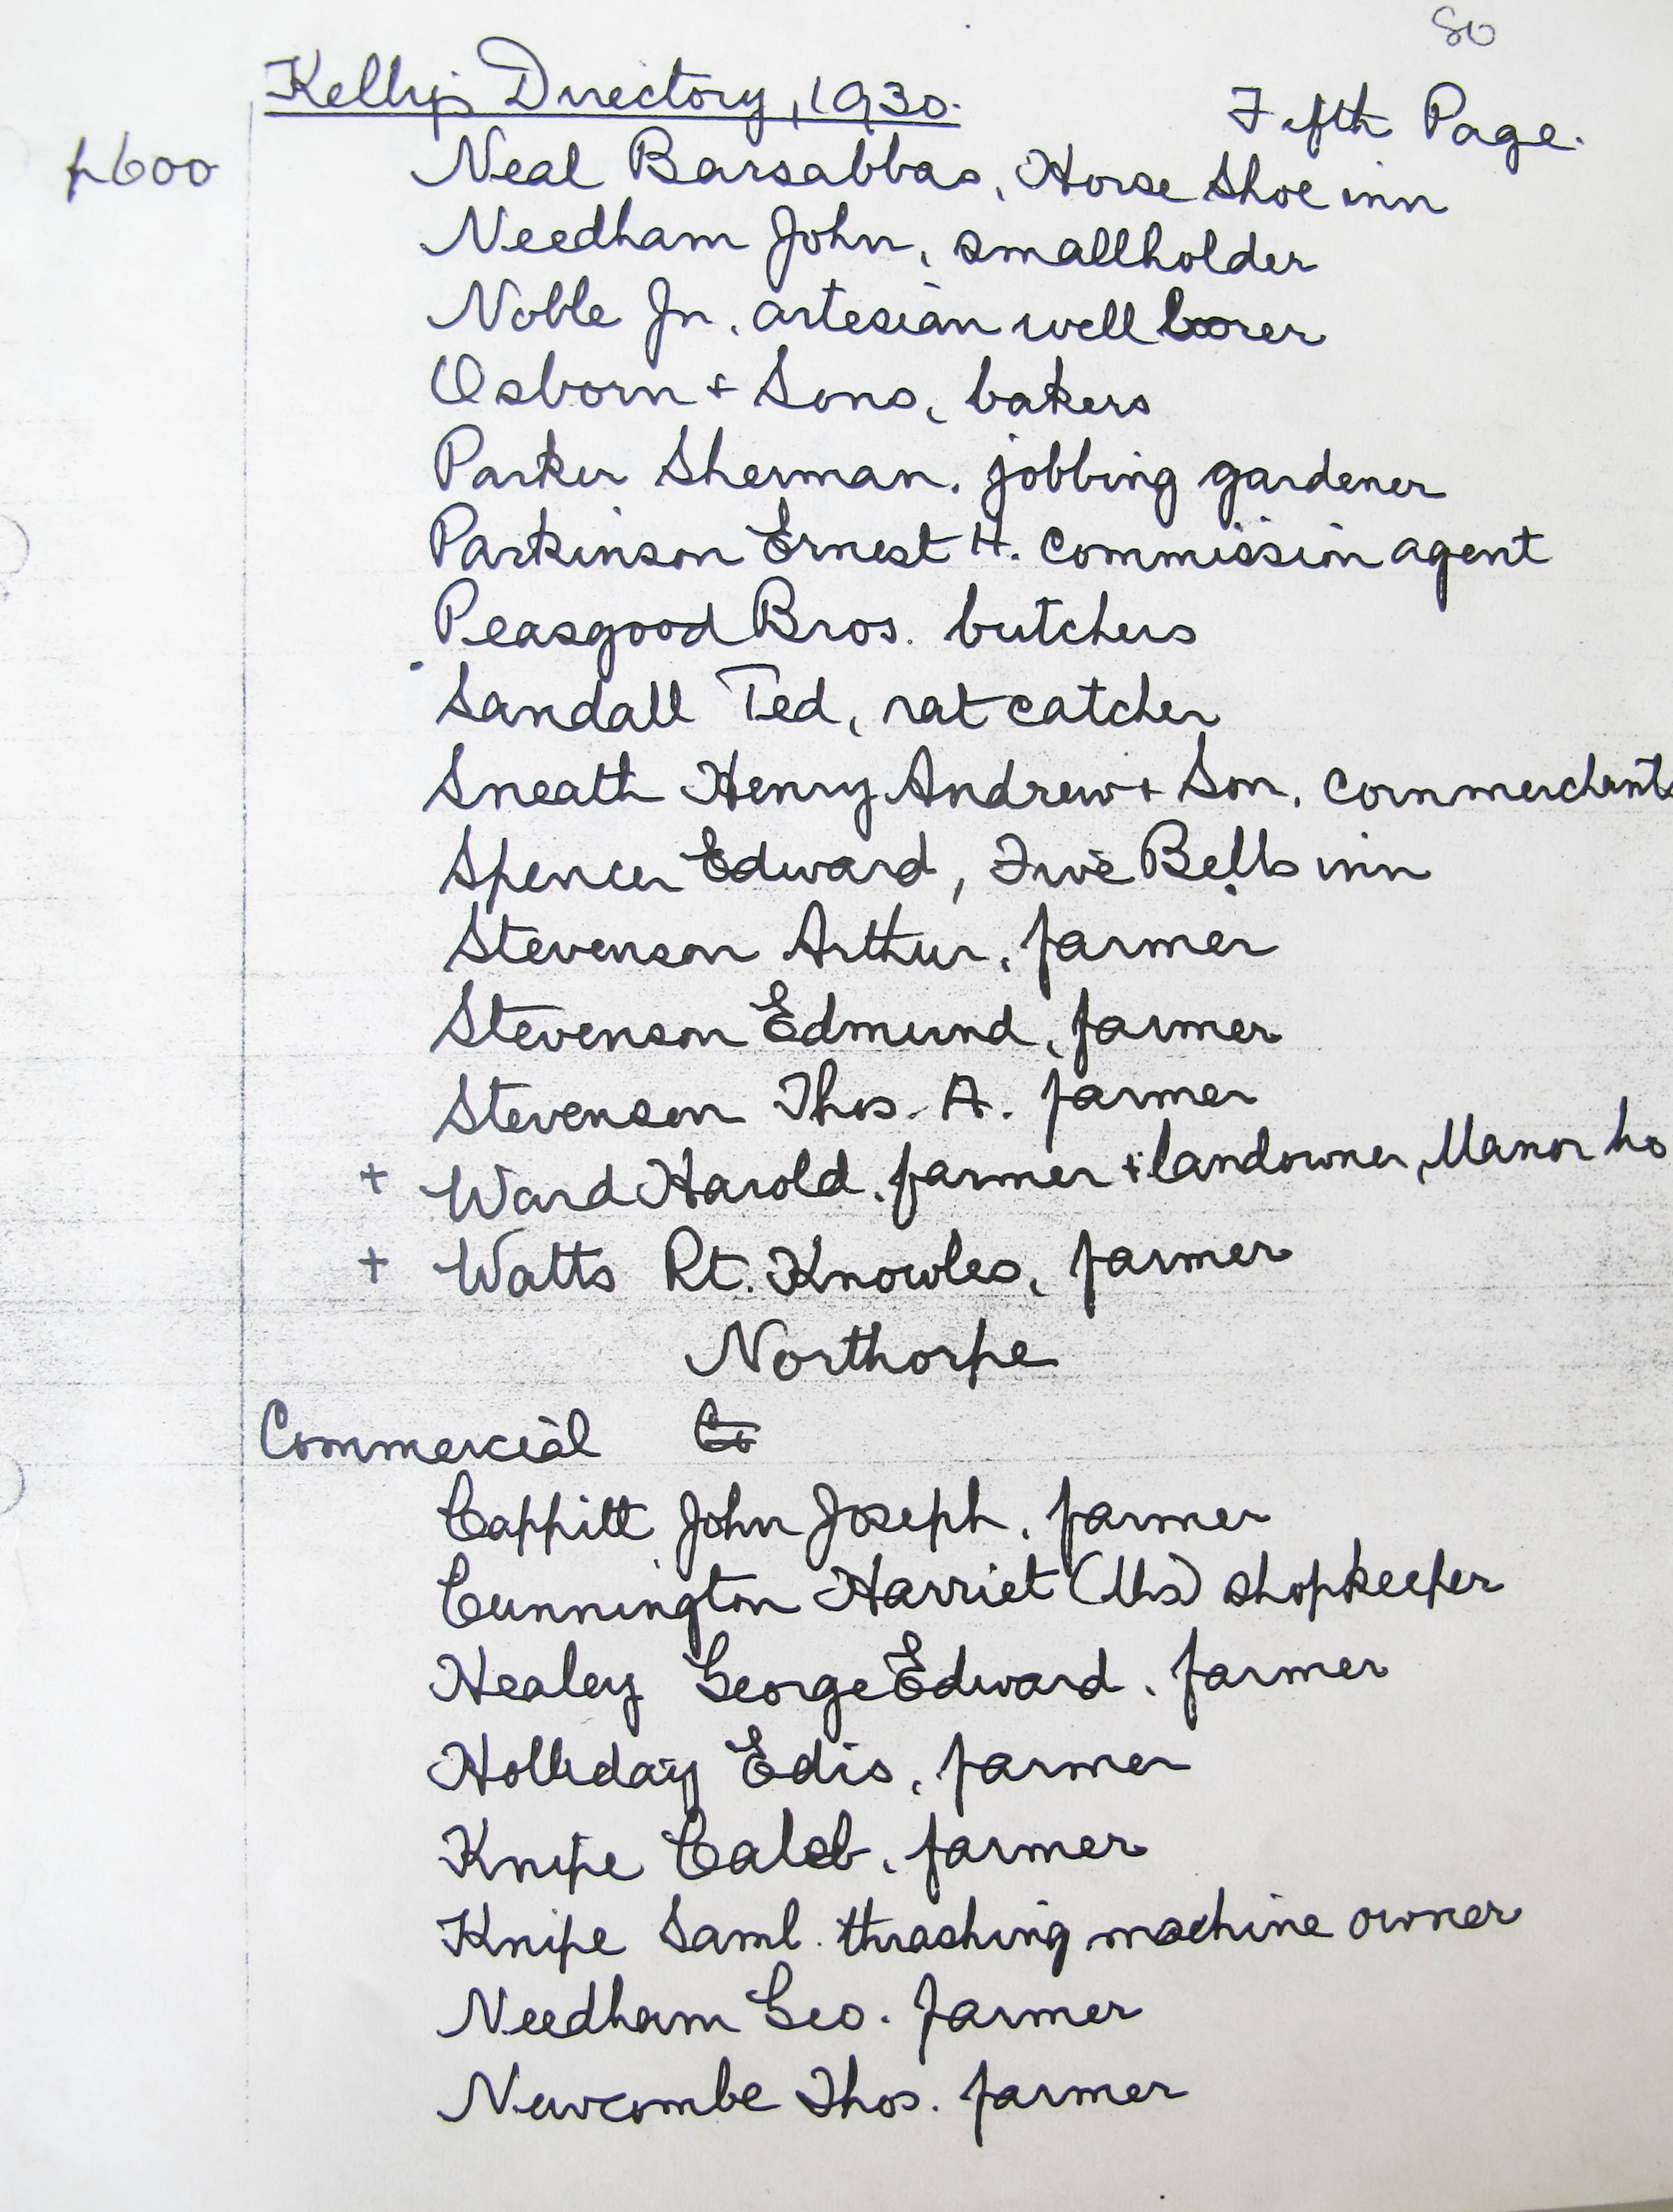 80
Kelly's Directory, 1930. Fifth Page.
p600 Neal Barsabbas, Horse Shoe inn
Needham John, smallholder
Noble Jn. artesian well borer
Osborn + Sons, bakers
Parker Sherman. jobbing gardener
Parkinson Ernest H. commission agent
Peasgood Bros. butchers
Sandall Ted, rat catcher
Sneath Henry Andrew + Son, corn merchants
Spencer Edward, Five Bells inn
Stevenson Arthur, farmer
Stevenson Edmund, farmer
Stevenson Thos. A. farmer
+ Ward Harold, farmer + landowner, Manor ho
+ Watts Rt. Knowles, farmer
Northorpe
Commercial Co
Cappitt John Joseph, farmer
Cunnington Harriet (Mrs) shopkeeper
Healey George Edward, farmer
Holliday Edis, farmer
Knipe Caleb, farmer
Knipe Saml. thrashing machine owner
Needham Geo. farmer
Newcombe Thos. farmer